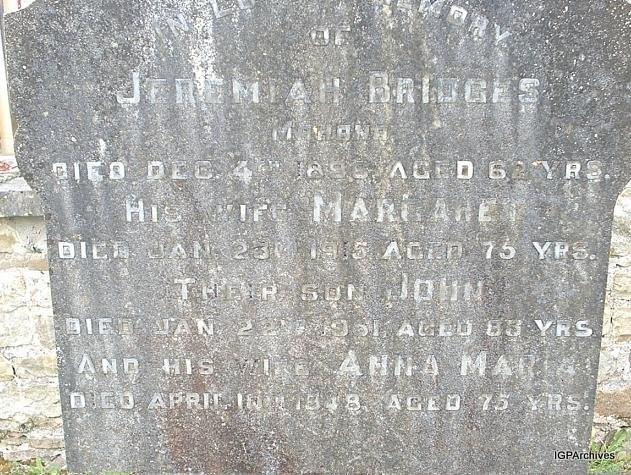 IN LOVING MEMORY
OF
JEREMIAH BRIDGES
DIED DEC. 4TH AGED YRS.
HIS WIFE MARGARET
DIED JAN. 23RD 1915 AGED 75 YRS.
THEIR SON JOHN
DIED JAN. 22ND 1951, AGED 83 YRS
AND HIS WIFE ANNA MARIA
DIED APRIL 1948, AGED 75 YRS.
IGPArchives